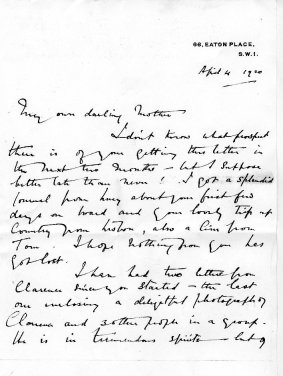 66, EATON PLACE,
S.W.1.
April 4 1920
My own darling Mother
I don't know what prospect
there is of you getting this letter in
the next two months – but I suppose
better late than never! I got a splendid
journal from you about your first few
days on board and your lovely trip up
Country from Lisbon, also a line from
Tom. I hope nothing from you has
got lost.
I have had two letters from
Clarence since you started – the last
one enclosing a delightful photograph of
Clarence and 3 other people in a group.
He is in tremendous spirits – but